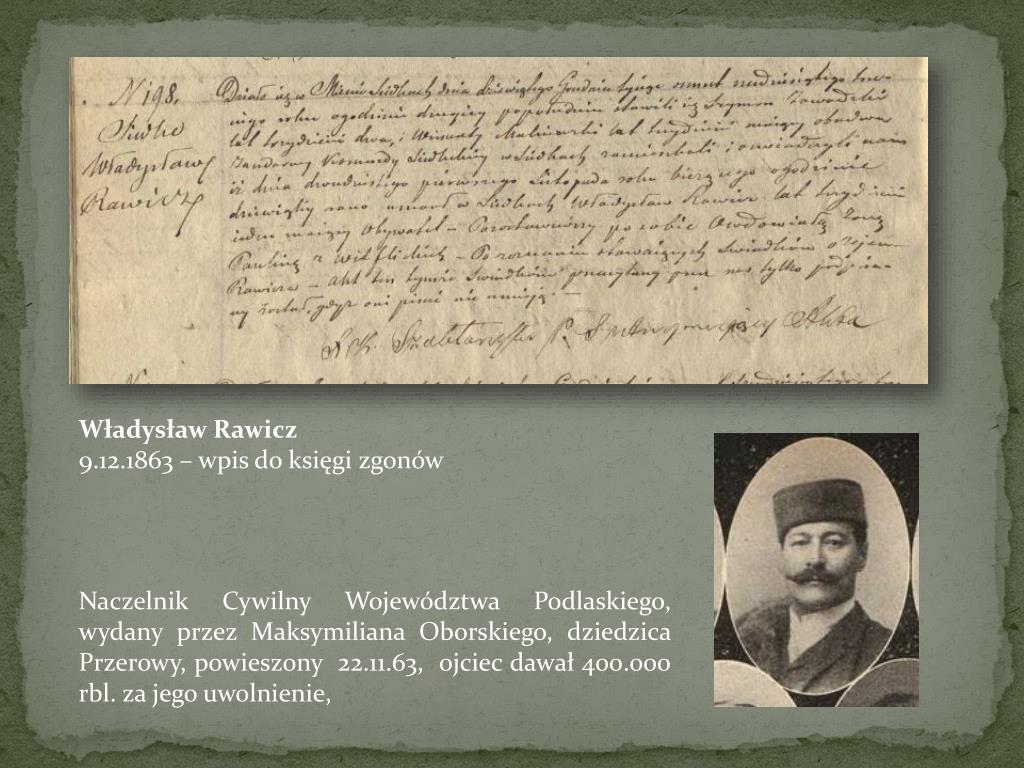 N 198.
Siedlce
Władysław
Rawicz
Działo się w Mieście Siedlcach dnia dziewiątego Grudnia tysiąc osiemset sześćdziesiątego trze-
ciego roku o godzinie drugiej popołudniu stawili się Szymon Zawadzki
lat trzydzieści dwa, i Wincenty Malinowski lat trzydzieści mający obydwa
Żandarmy Komendy Siedleckiej w Siedlcach zamieszkali i oświadczyli nam
iż dnia dwudziestego pierwszego Listopada roku bieżącego o godzinie
dziewiątej rano umarł w Siedlcach Władysław Rawicz lat trzydzieści
jeden mający Obywatel – Pozostawiwszy po sobie Owdowiałą Żonę
Paulinę z – Po przekonaniu stawających Świadków o zejściu
Rawicza – Akt ten tymże Świadkom przeczytany przez nas tylko podpisa-
ny został, gdyż oni pisać nie umieją. –
Władysław Rawicz
9.12.1863 – wpis do księgi zgonów
Naczelnik Cywilny Województwa Podlaskiego,
wydany przez Maksymiliana Oborskiego, dziedzica
Przerowy, powieszony 22.11.63, ojciec dawał 400.000
rbl. za jego uwolnienie,